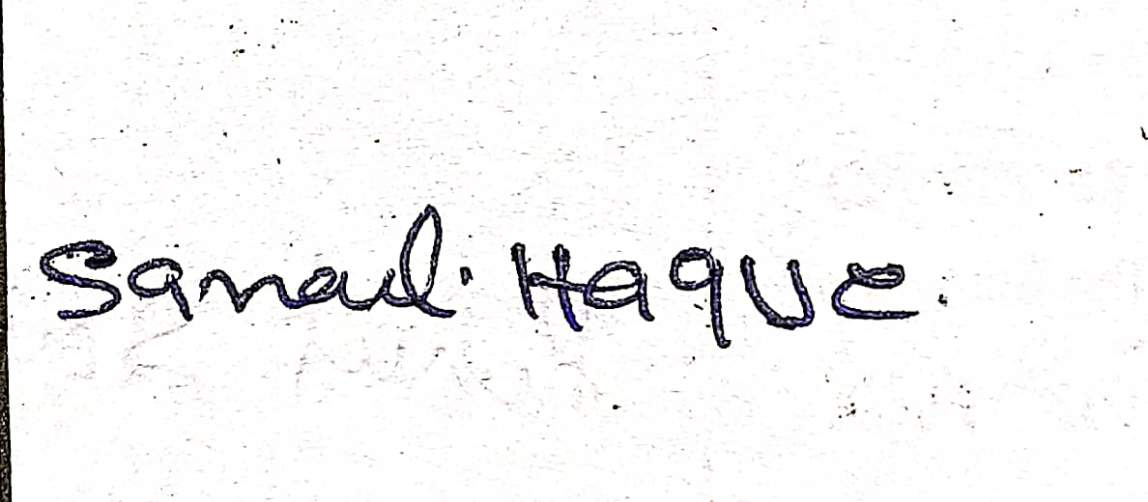 Sanaul. Haque.